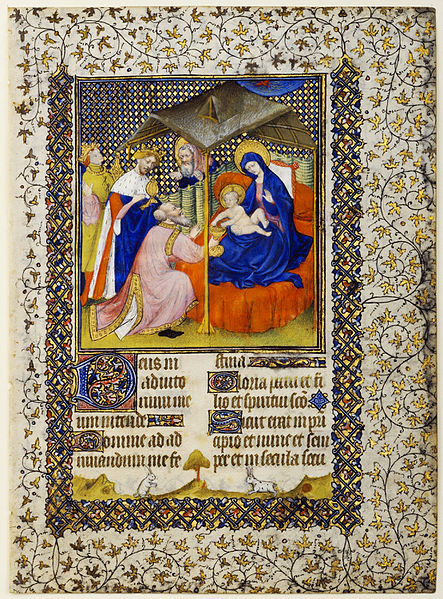 Deus in
adiuto
rium me
um intende
Domine ad ad
iuuandum me fe
stina
Gloria patri et fi
lio et spiritui sco
Sicut erat in pri
cipio et nunc et sem
per et in secula secu